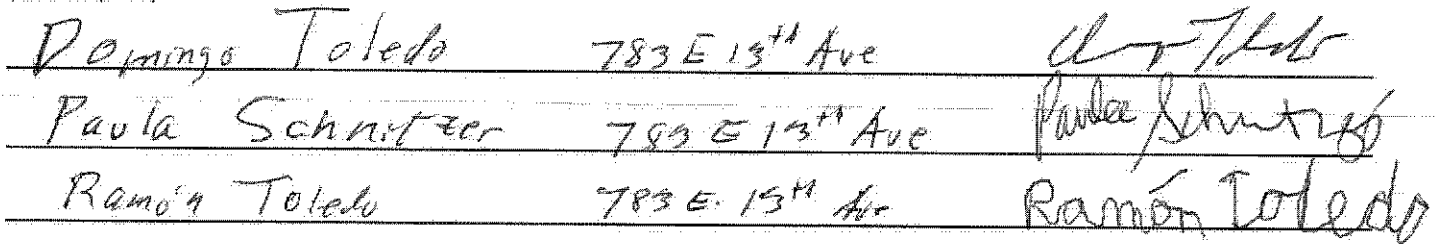 Domingo Toledo 783 E 13th Ave
Paula Schnitzer 783 E 13th Ave Paula Schnitzer
Ramón Toledo 783 E. 13th Ave Ramón Toledo